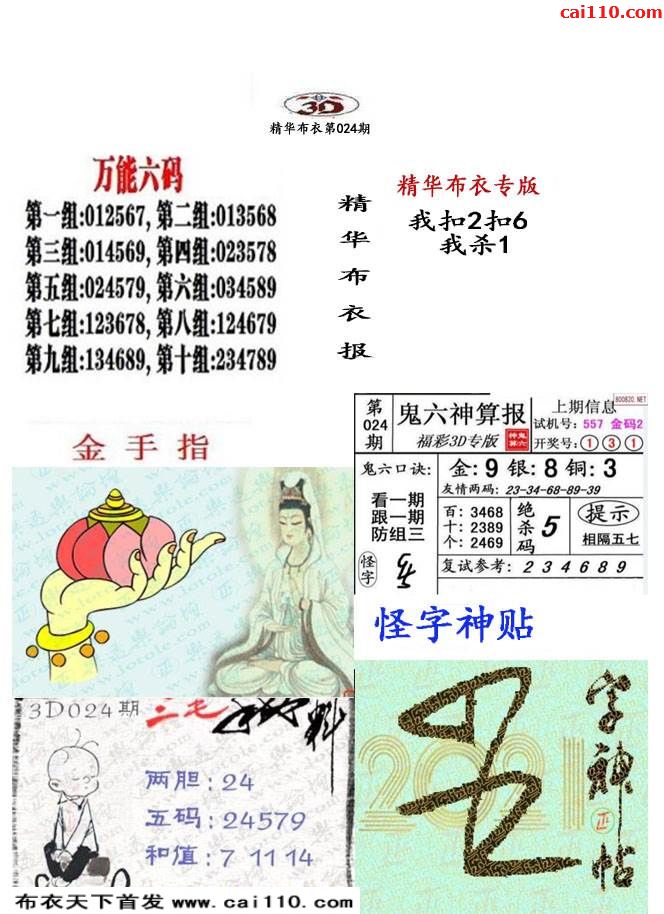 cai110.com
3D
精华布衣第024期
万能六码
第一组:012567, 第二组:013568
第三组:014569, 第四组:023578
第五组:024579, 第六组:034589
第七组:123678, 第八组:124679
第九组:134689, 第十组:234789
精华布衣报
精华布衣专版
我扣2扣6
我杀1
金手指
第024期
鬼六神算报
福彩3D专版
神鬼算六
800820.NET
上期信息
试机号: 557 金码2
开奖号: 1 3 1
鬼六口诀:
金: 9 银: 8 铜: 3
友情两码: 23-34-68-89-39
看一期
跟一期
防组三
百: 3468
十: 2389
个: 2469
绝杀码
5
提示
相隔五七
怪字
复试参考: 2 3 4 6 8 9
怪字神贴
3D024期
三毛
两胆: 24
五码: 24579
和值: 7 11 14
2021
字神帖
布衣天下首发 www.cai110.com